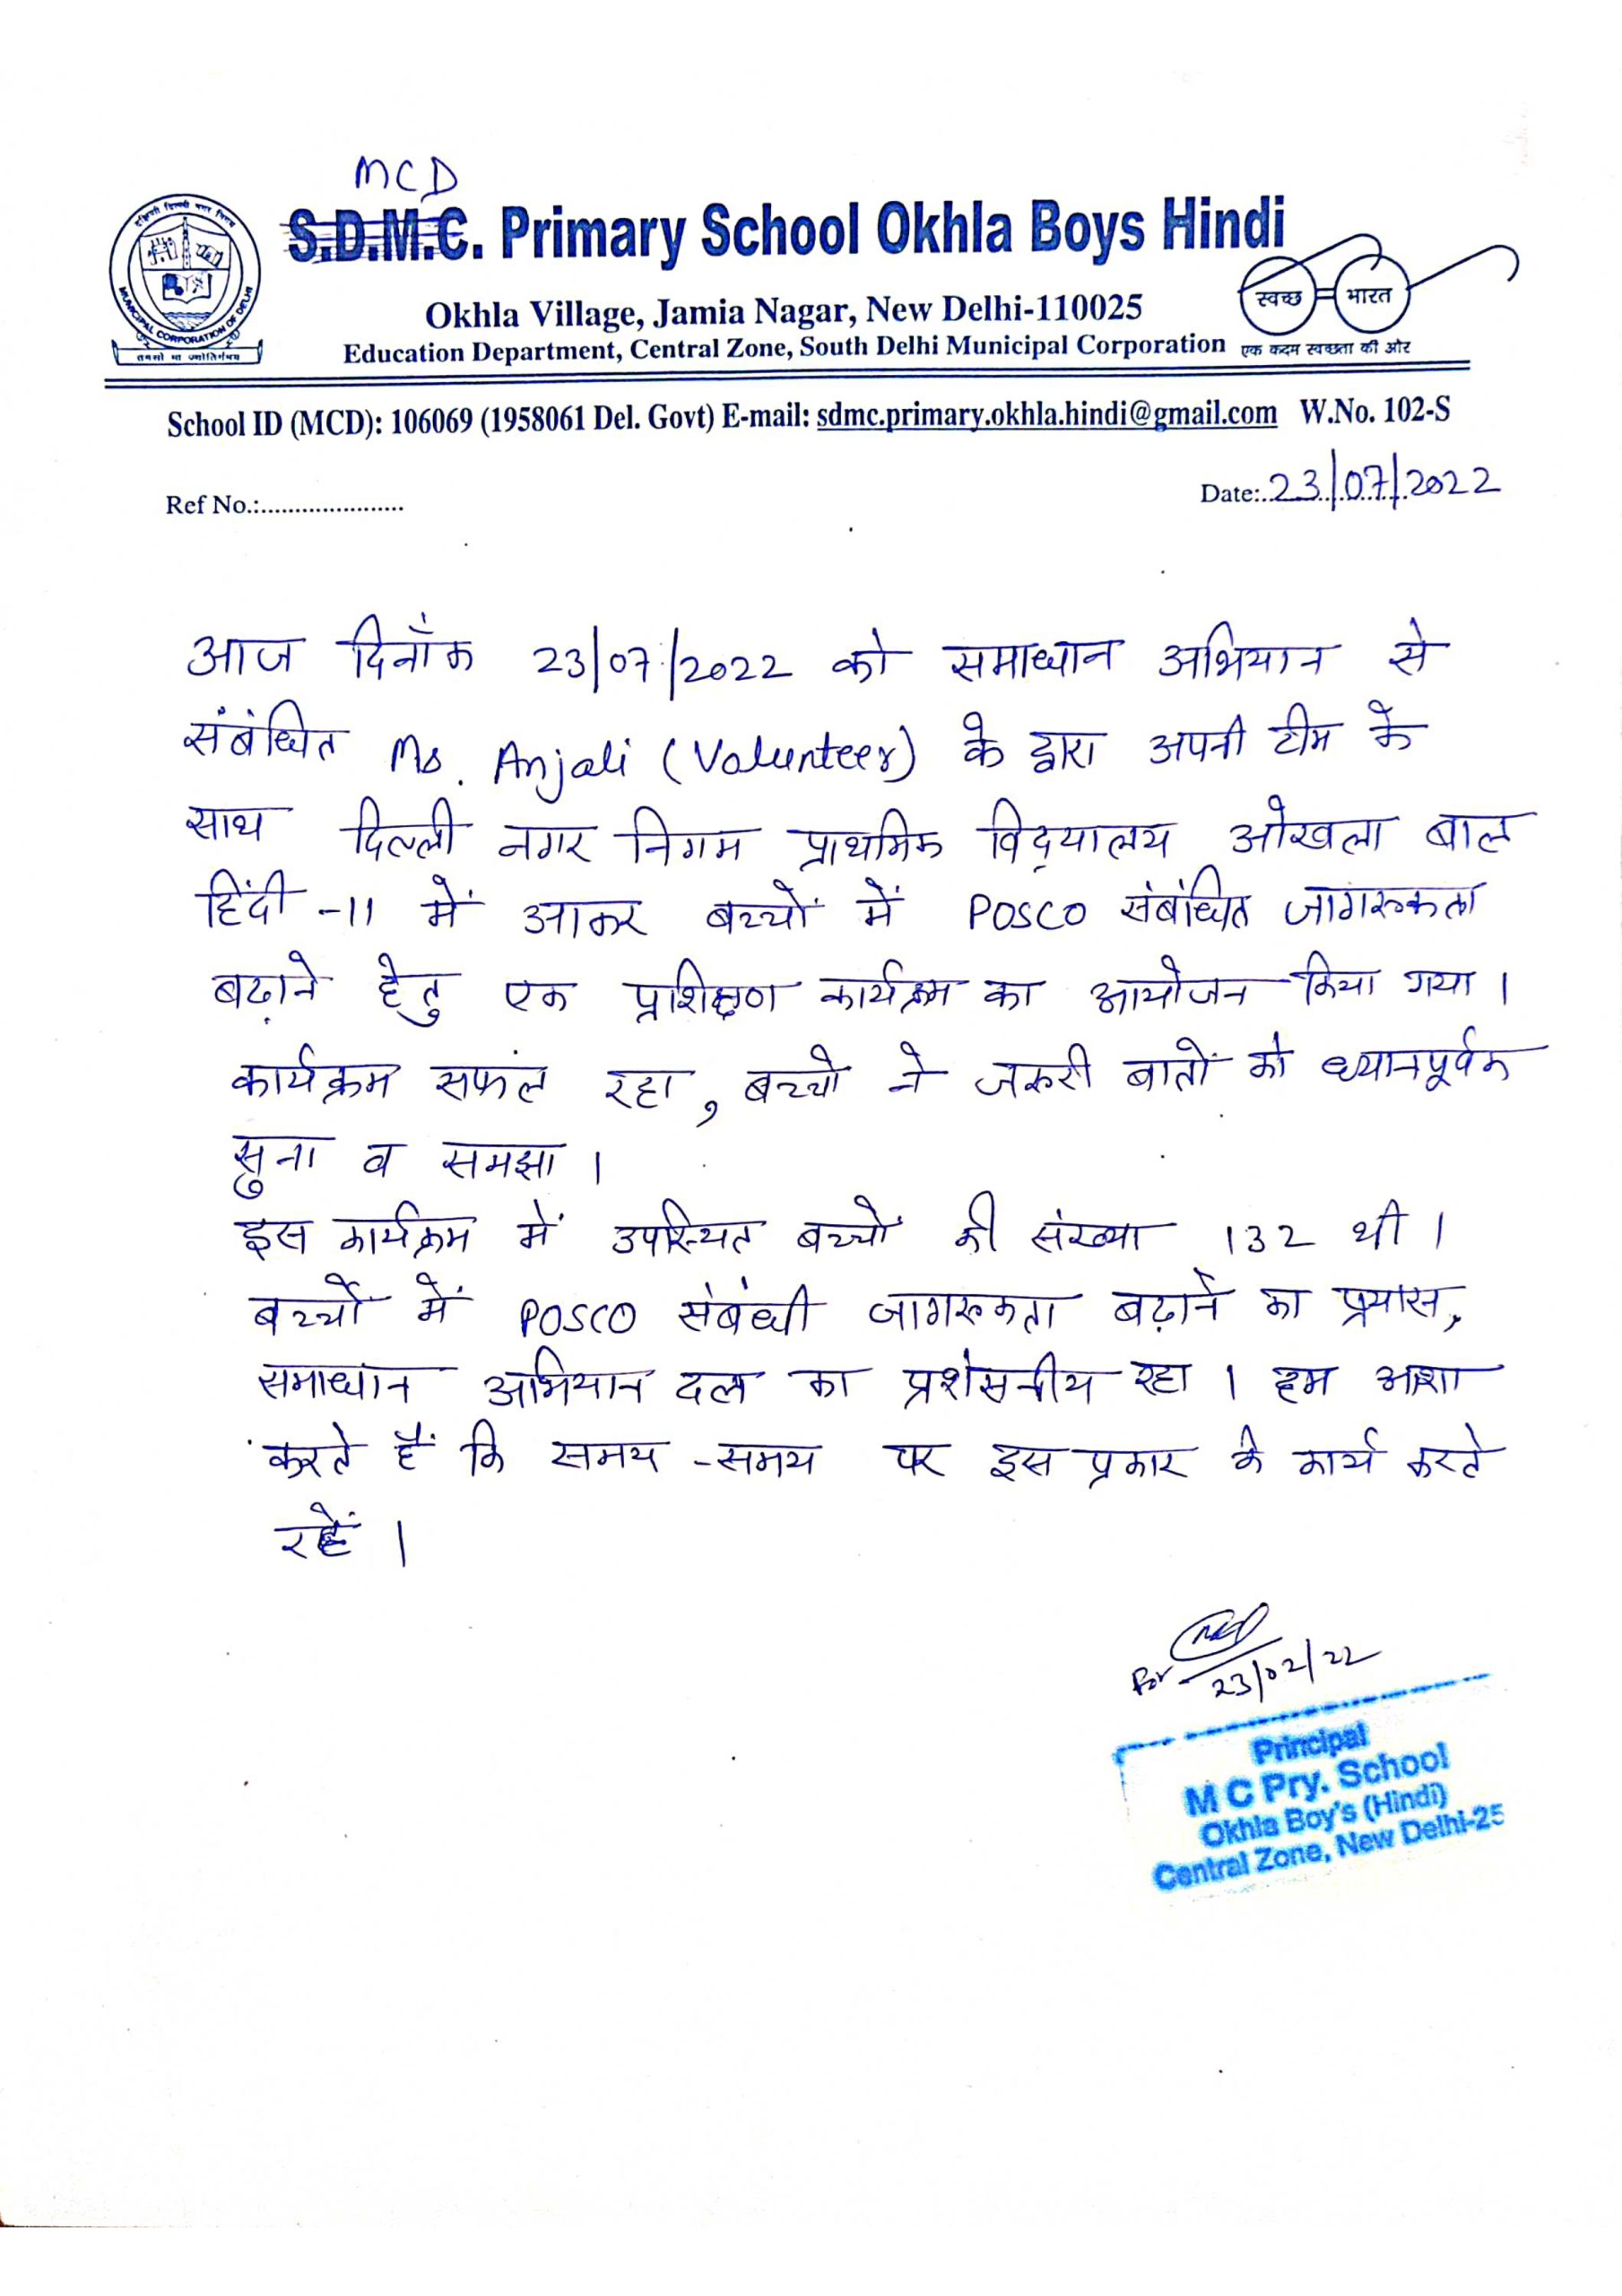 MCD
S.D.M.C. Primary School Okhla Boys Hindi
Okhla Village, Jamia Nagar, New Delhi-110025
Education Department, Central Zone, South Delhi Municipal Corporation
स्वच्छ भारत
एक कदम स्वच्छता की ओर
MUNICIPAL CORPORATION OF DELHI
तमसो मा ज्योतिर्गमय
School ID (MCD): 106069 (1958061 Del. Govt) E-mail: sdmc.primary.okhla.hindi@gmail.com W.No. 102-S
Ref No.:.....................
Date: 23/07/2022
आज दिनाँक 23/07/2022 को समाधान अभियान से
संबंधित Ms. Anjali (Volunteer) के द्वारा अपनी टीम के
साथ दिल्ली नगर निगम प्राथमिक विद्यालय ओखला बाल
हिंदी -11 में आकर बच्चों में POSCO संबंधित जागरूकता
बढ़ाने हेतु एक प्रशिक्षण कार्यक्रम का आयोजन किया गया।
कार्यक्रम सफल रहा, बच्चो ने जरूरी बातों को ध्यानपूर्वक
सुना व समझा।
इस कार्यक्रम में उपस्थित बच्चों की संख्या 132 थी।
बच्चों में POSCO संबंधी जागरूकता बढ़ाने का प्रयास,
समाधान अभियान दल का प्रशंसनीय रहा। हम आशा
करते हैं कि समय -समय पर इस प्रकार के कार्य करते
रहें।
For
23/02/22
Principal
M C Pry. School
Okhla Boy's (Hindi)
Central Zone, New Delhi-25